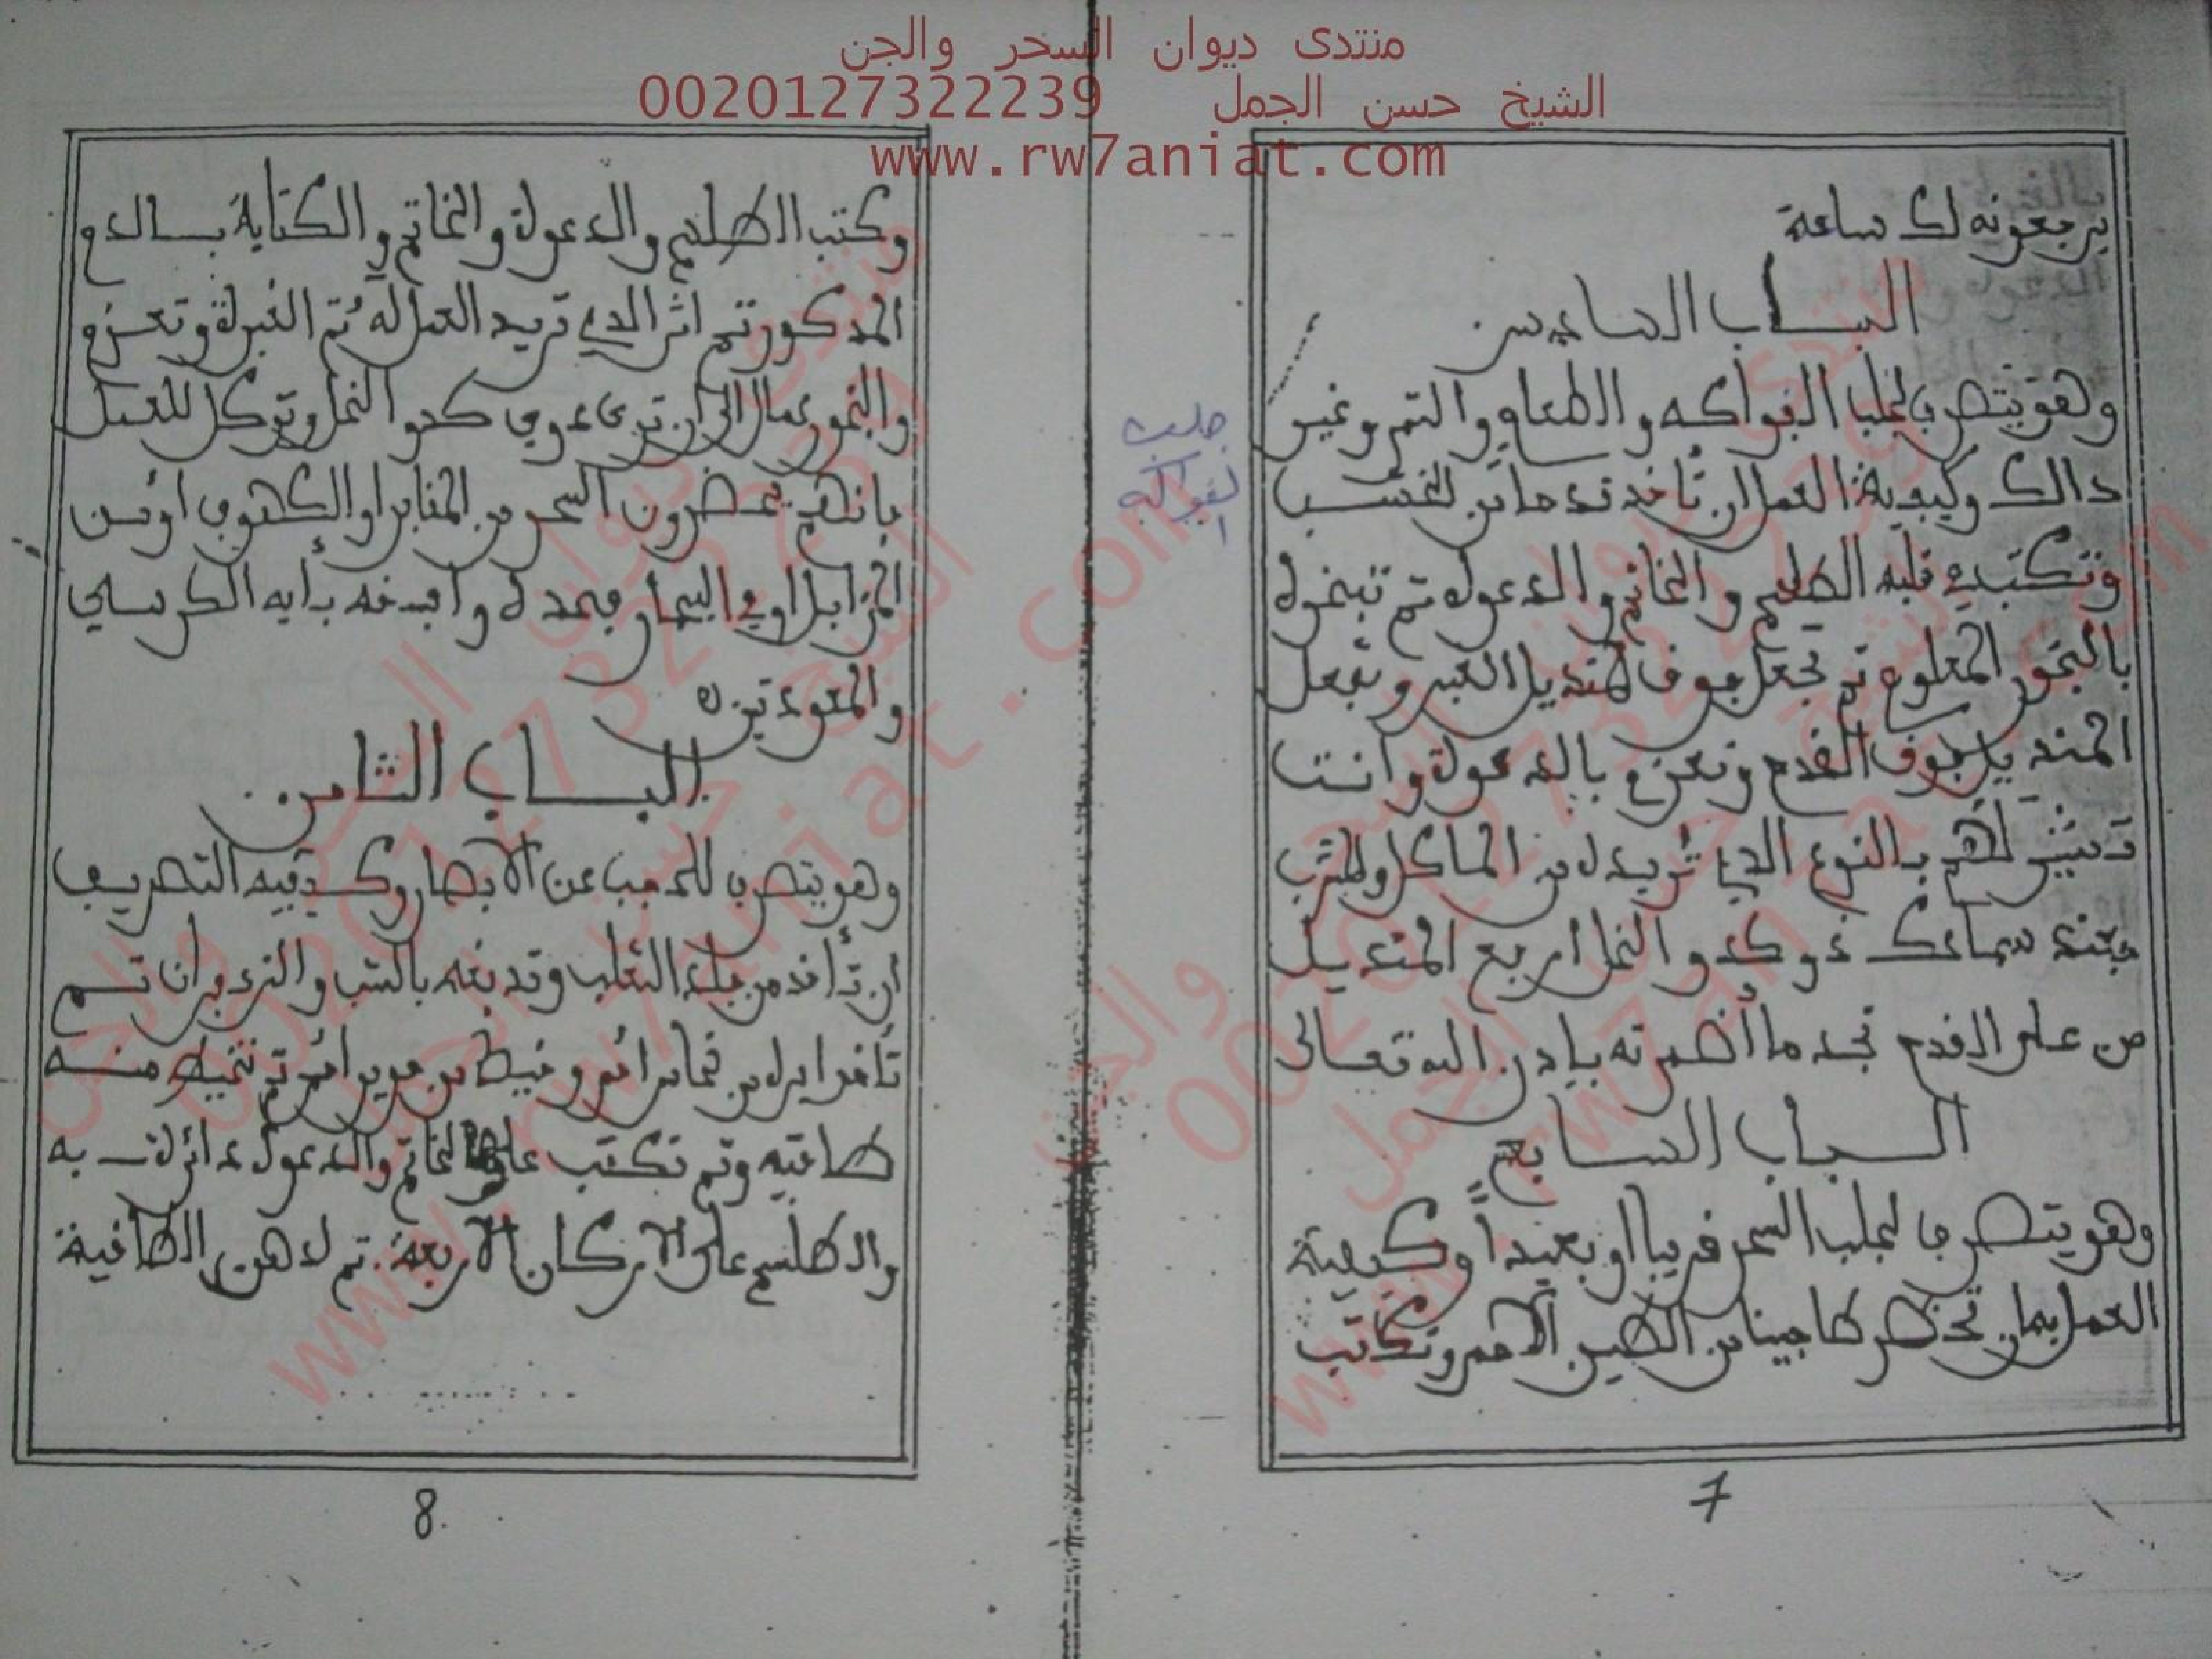 منتدى ديوان السحر والجن
الشيخ حسن الجمل 0020127322239
www.rw7aniat.com
يرجعونه لك ساعة
البـاب السادس
وهو يتصرف لجلب الفواكه والطعام والتمر وغير
دالك وكيفية العمل ان تأخد قدحا من لخشب
وتكتب في قلبه الطلسم والخاتم والدعوة تم تبخره
بالبخور المعلوم تم تجعل جوف المنديل وتجعل
المنديل جوف القدح وتعزم بالدعوة وانت
تشير لهم بالنوع الدي تريده من الماكل والمشرب
فعند سماعك دوي كدو النحل اربع المنديل
من على القدح تجد ما أضمرته بإدن الله تعالى
البـاب السابع
وهو يتصرف لجلب السحر قريبا او بعيداً وكيفية
العمل بهان تحضر طاجينا من الطين الأحمر وتكتب
7
جلب
لفواكه
وكتب الطلسم والدعوة والخاتم والكتابة بـالدم
المدكور تم اثر الدي تريد العمل له تم الغبرة وتعزم
والبخور عمال الى ان ترى دوي كدو النحل وتوكل للعمل
بانهم يحضرون السحر من المقابر او الكهوف أو من
المزابل او في البحار فيحده وافسخه بأيه الكرسي
والمعودتين
البـاب الثامن
وهو يتصرف للحجب عن الأبصار وكيفيه التصريف
ان تأخد من جلد الثعلب وتدبغه بالشب و تم
تأخد ابرة من نحاس احمر وخيط من حرير احمر تم تخيط منه
طاقيه وتم تكتب عليها الخاتم والدعوة دائرة به
والطلسم على الأركان الأربعة تم لدهن الطاقية
8